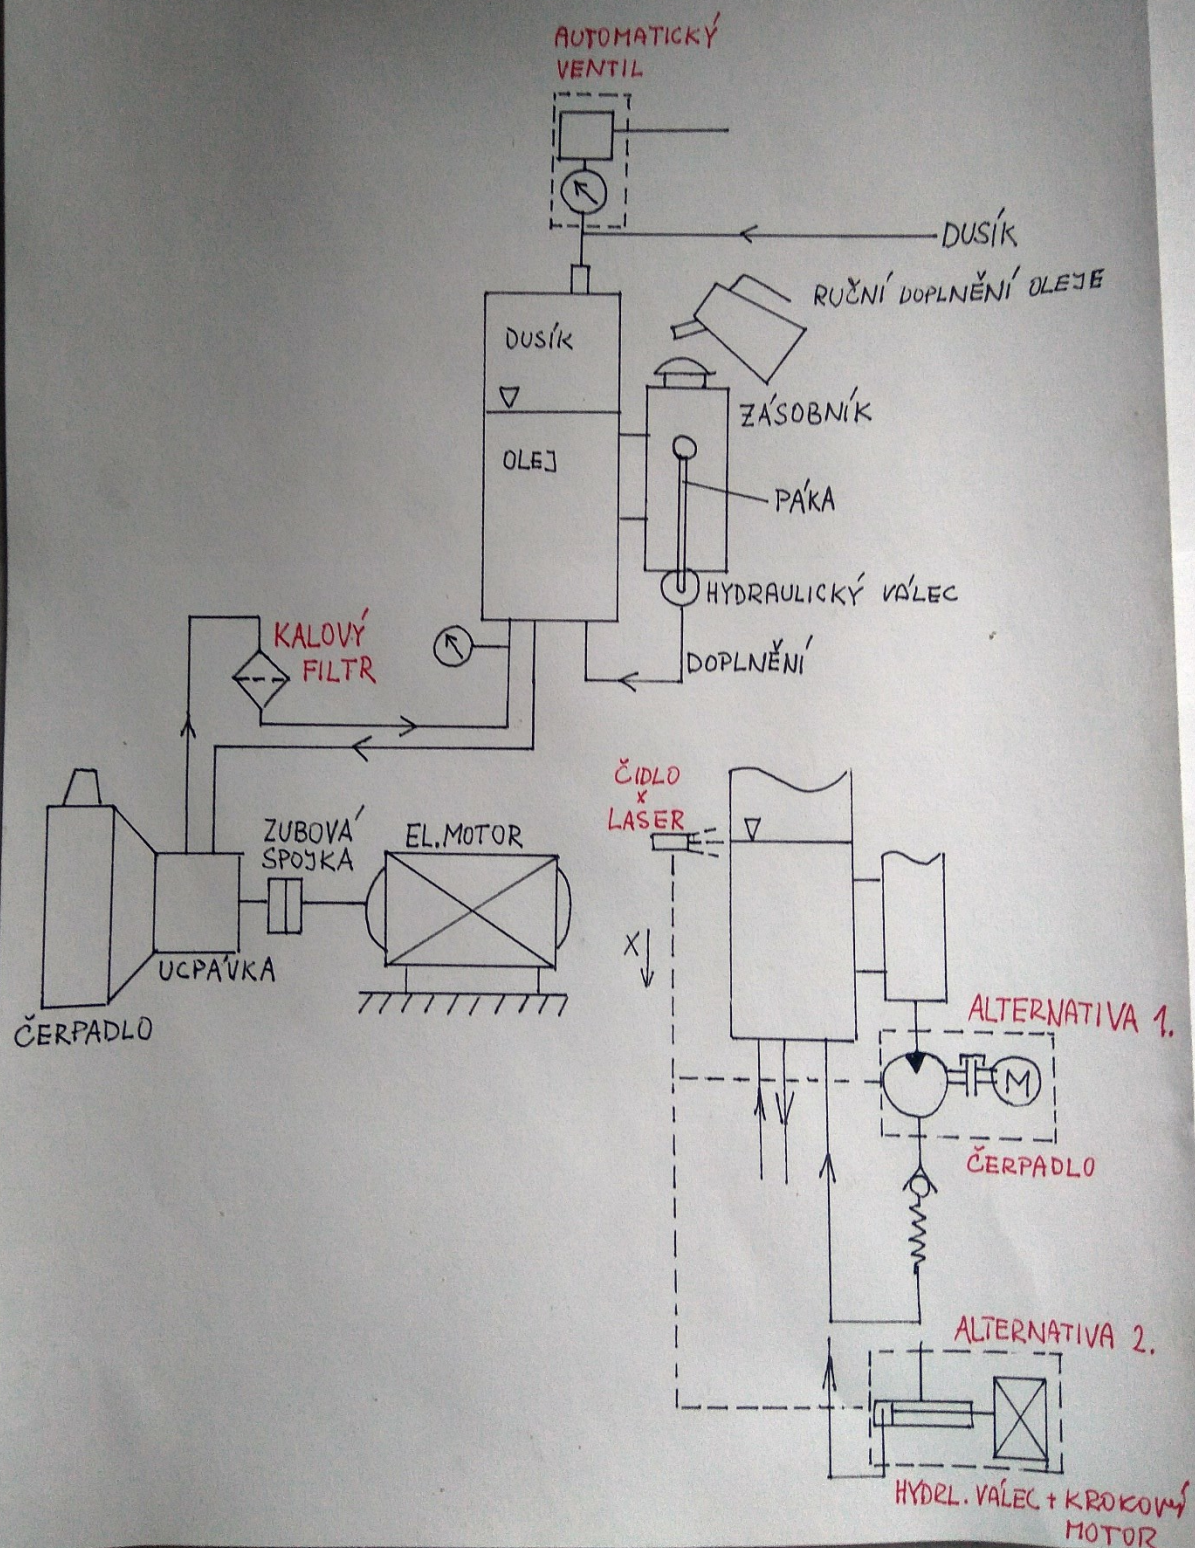 AUTOMATICKÝ
VENTIL
DUSÍK
RUČNÍ DOPLNĚNÍ OLEJE
DUSÍK
ZÁSOBNÍK
OLEJ
PÁKA
HYDRAULICKÝ VÁLEC
KALOVÝ
FILTR
DOPLNĚNÍ
ČIDLO
x
LASER
ZUBOVÁ
SPOJKA
EL. MOTOR
X
UCPÁVKA
ČERPADLO
ALTERNATIVA 1.
M
ČERPADLO
ALTERNATIVA 2.
HYDRL. VÁLEC + KROKOVÝ
MOTOR